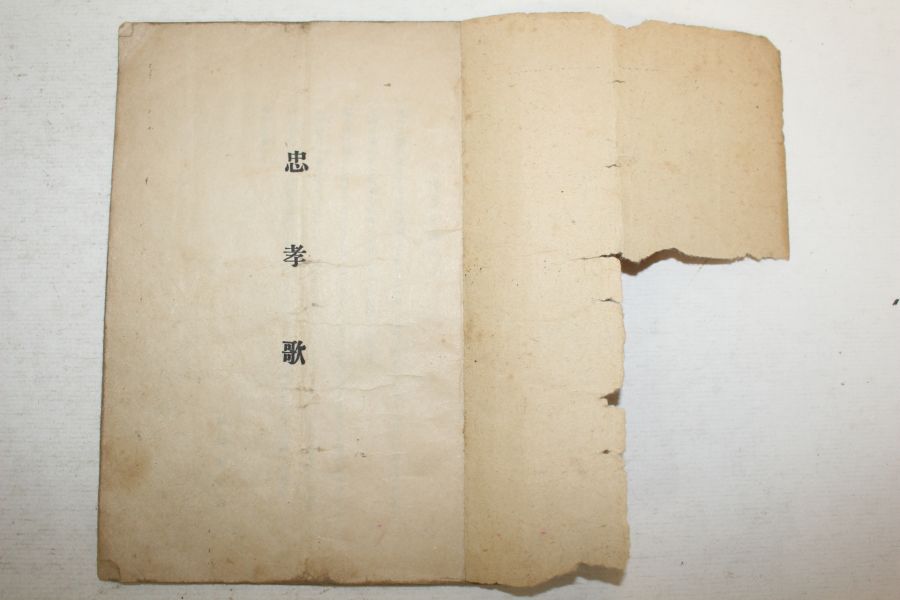 忠孝歌